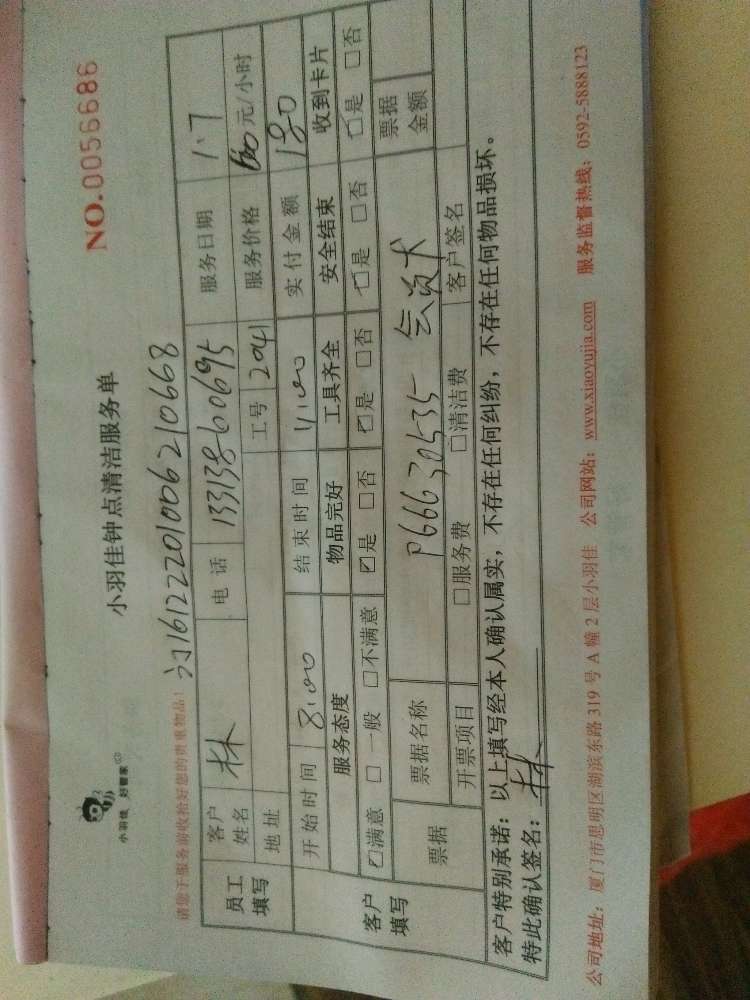 小羽佳 好管家
小羽佳钟点清洁服务单
NO.0056686
请您于服务前收拾好您的贵重物品!
订161222010062106​68
员工填写 客户姓名 林 电话 13313860695 服务日期 1.7
地址 工号 204 服务价格 元/小时
开始时间 8:00 结束时间 11:00 实付金额 180
客户填写 服务态度 物品完好 工具齐全 安全结束 收到卡片
☑满意 □一般 □不满意 ☑是 □否 ☑是 □否 ☑是 □否 ☑是 □否
票据 票据名称 P66630535 会员卡 票据金额
开票项目 □服务费 □清洁费 客户签名
客户特别承诺:以上填写经本人确认属实,不存在任何纠纷,不存在任何物品损坏。
特此确认签名:林
公司地址:厦门市思明区湖滨东路319号A幢2层小羽佳 公司网站:www.xiaoyujia.com 服务监督热线:0592-5888123